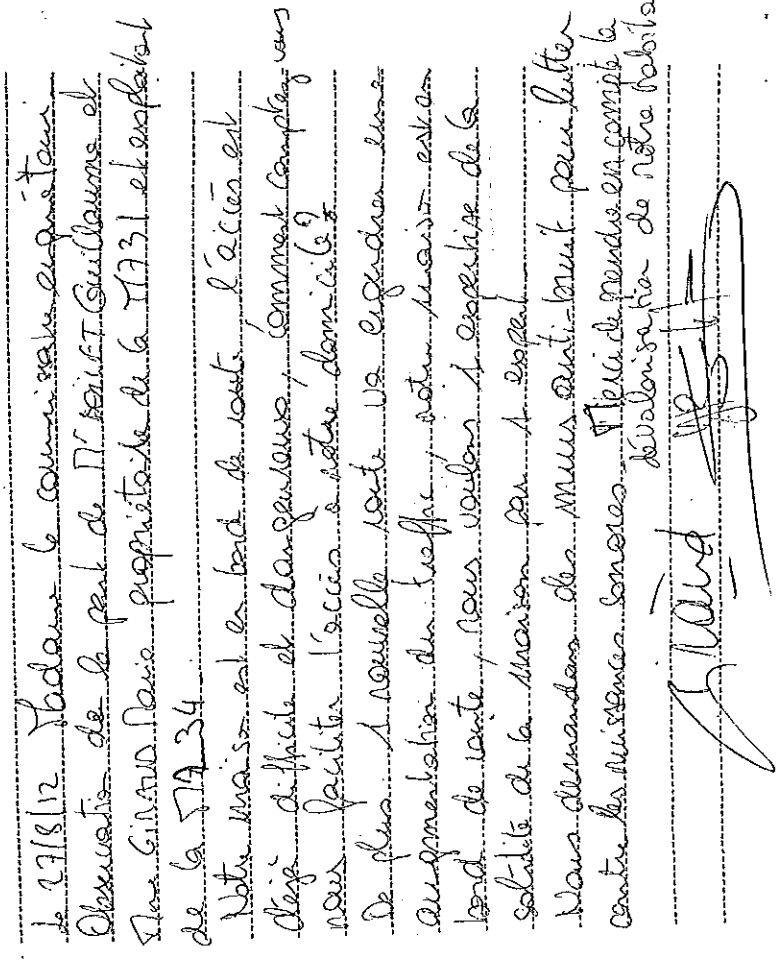 Le 27/8/12 Madame le commissaire enquêteur
Observation de la part de Mr Guillaume et
Mme GIRAUD Marie propriétaire de la M731 et exploitant
de la M734
Notre maison est en bord de route l'accès est
déjà difficile et dangereux, comment comptez-vous
nous faciliter l'accès à notre domicile?
De plus 1 nouvelle route va engendrer une
augmentation du traffic, notre maison est en
bord de route, nous voulons 1 expertise de la
solidité de la maison par 1 expert
Nous demandons des murs anti-bruit pour lutter
contre les nuisances sonores. Merci de prendre en compte la
dévalorisation de notre habita
Giraud